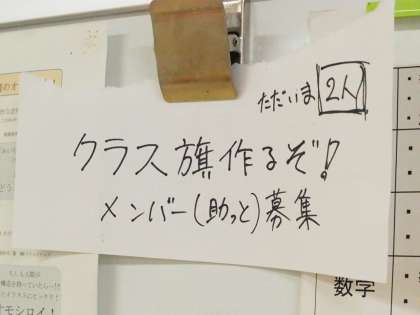 ただいま 2人
クラス旗作るぞ!
メンバー(助っと)募集
数字